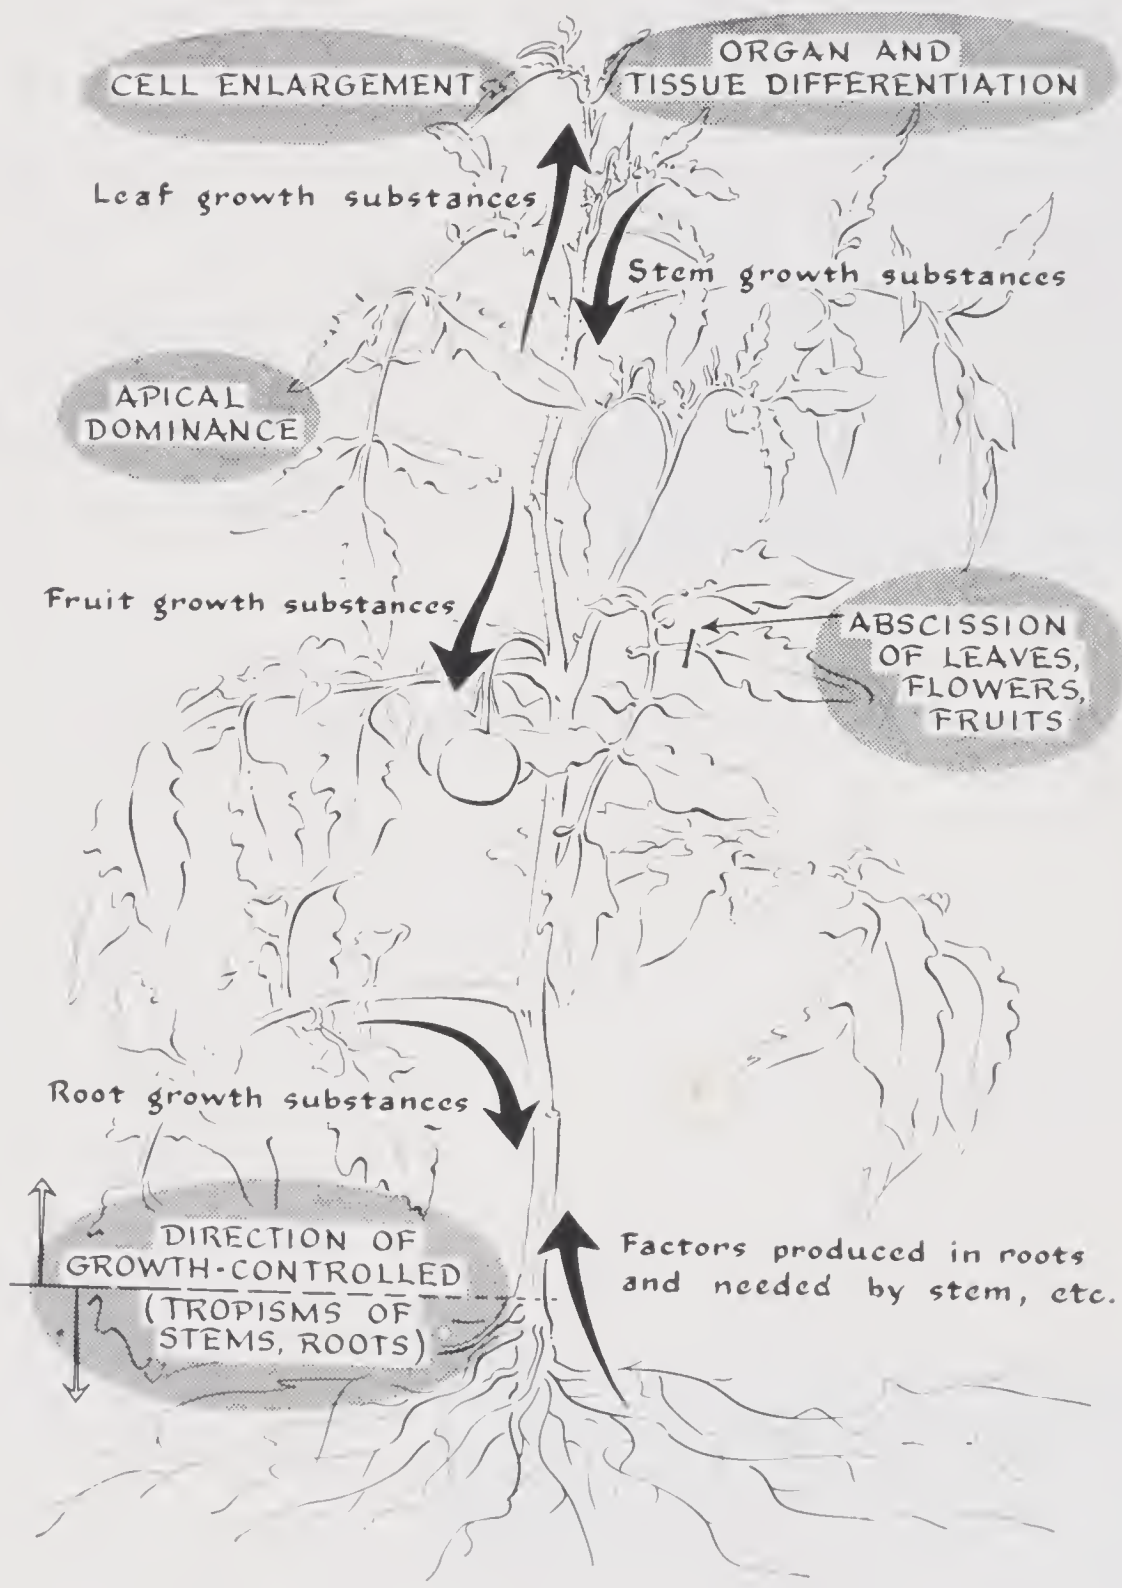 CELL ENLARGEMENT
ORGAN AND
TISSUE DIFFERENTIATION
Leaf growth substances
Stem growth substances
APICAL
DOMINANCE
Fruit growth substances
ABSCISSION
OF LEAVES,
FLOWERS,
FRUITS
Root growth substances
DIRECTION OF
GROWTH-CONTROLLED
(TROPISMS OF
STEMS, ROOTS)
Factors produced in roots
and needed by stem, etc.